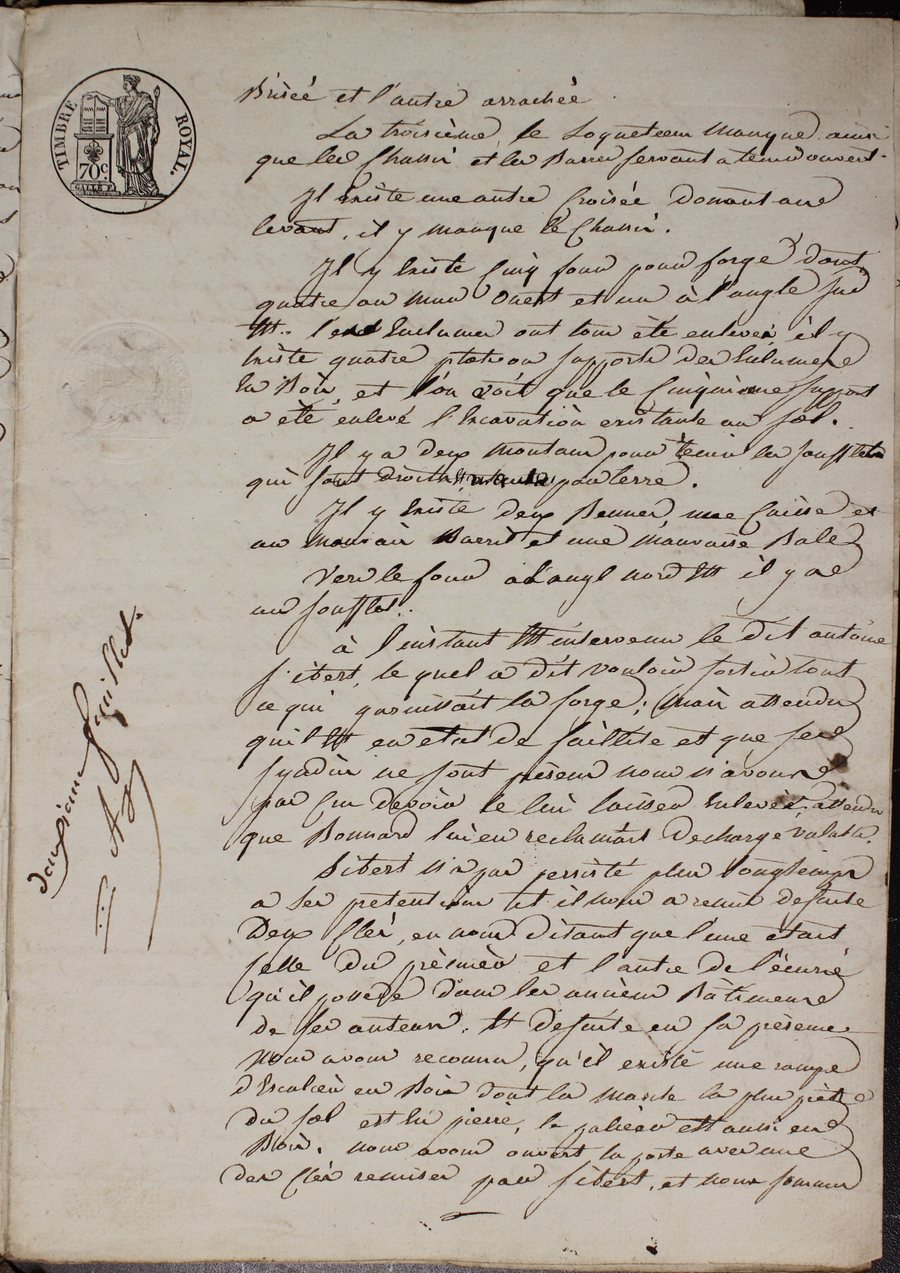 TIMBRE ROYAL.
70c
Brisée et l'autre arrachée
La troisième, le Loqueteau manque ainsi
que les Chassis et les Barres servant a tenir ouvert.
Il existe une autre Croisée donant au
levant, il y manque le Chassis.
Il y existe Cinq four pour forge dont
quatre au mur Ouest et un à l'angle sud
Est. les Enclumes ont tous été enlevés, il y
existe quatre plateau support des Enlumes
En Bois, et l'on voit que le Cinquième support
a été enlevé l'Excavation existante au sol.
Il y a deux montans pour tenir les soufflets
qui sont droits par terre.
Il y existe deux Bennes, une Caisse et
un mauvais Barril et une mauvaise Bale
Vers le four a l'angl nord Est il y a
un soufflet.
à l'instant Est intervenu le dit antoine
Sibert, le quel a dit vouloir sortir tout
ce qui garnissait la forge; Mais attendu
qu'il Est en etat de faillite et que ses
syndics ne sont présens nous n'avons
pas Cru devoir le lui laisser enlever, attendu
que Bonnard lui en reclamais décharge valable.
Sibert n'a pas persisté plus longtemps
a ses pretentions et il nous a remis de suite
Deux Clés, en nous disant que l'une était
celle du prèmier et l'autre de l'écurie
qu'il possede dans les anciens Bâtimens
de ses auteurs. Et de suite en sa présence
Nous avons reconnu, qu'il existe une rampe
d'Escaliers en Bois dont la marche la plus près
du sol est En pierre, le palièr est aussi en
Bois. nous avons ouvert la porte avec une
des Clés remises par Sibert, et nous sommes
deuxième feuillet.